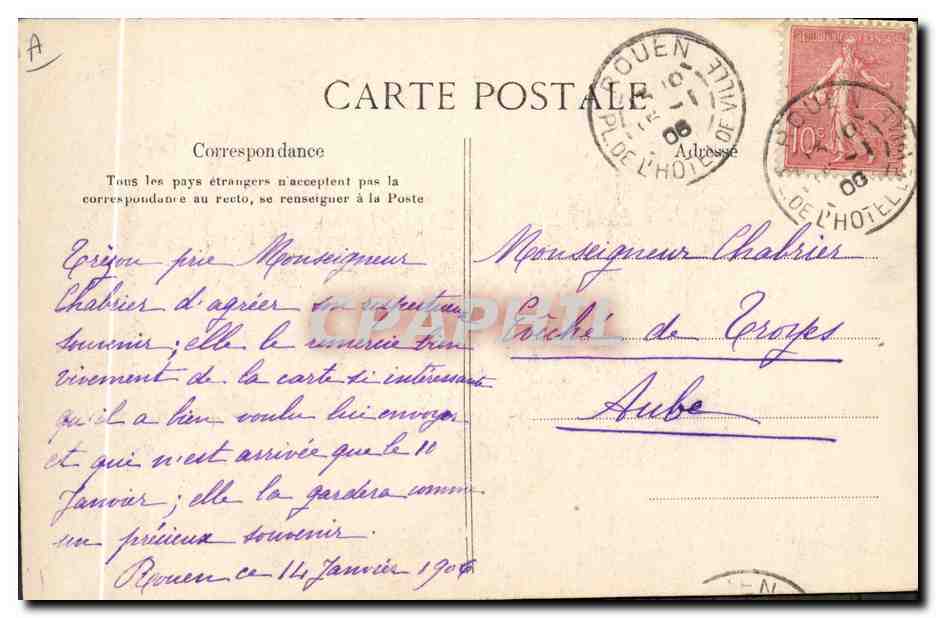 A
CARTE POSTALE
ROUEN
PL. DE L'HOTEL DE VILLE
15 -1
06
REPUBLIQUE FRANÇAISE
10c
ROUEN
PL. DE L'HOTEL DE VILLE
06
Correspondance
Tous les pays étrangers n'acceptent pas la
correspondance au recto, se renseigner à la Poste
Adresse
prie Monseigneur
Chabrier d'agréer son respectueux
souvenir ; elle le remercie bien
vivement de la carte si intéressante
qu'il a bien voulu lui envoyer
et qui n'est arrivée que le 11
Janvier ; elle la gardera comme
un précieux souvenir.
Rouen ce 14 Janvier 1906
Monseigneur Chabrier
Evêché de Troyes
Aube
CPAPHIL
UEN